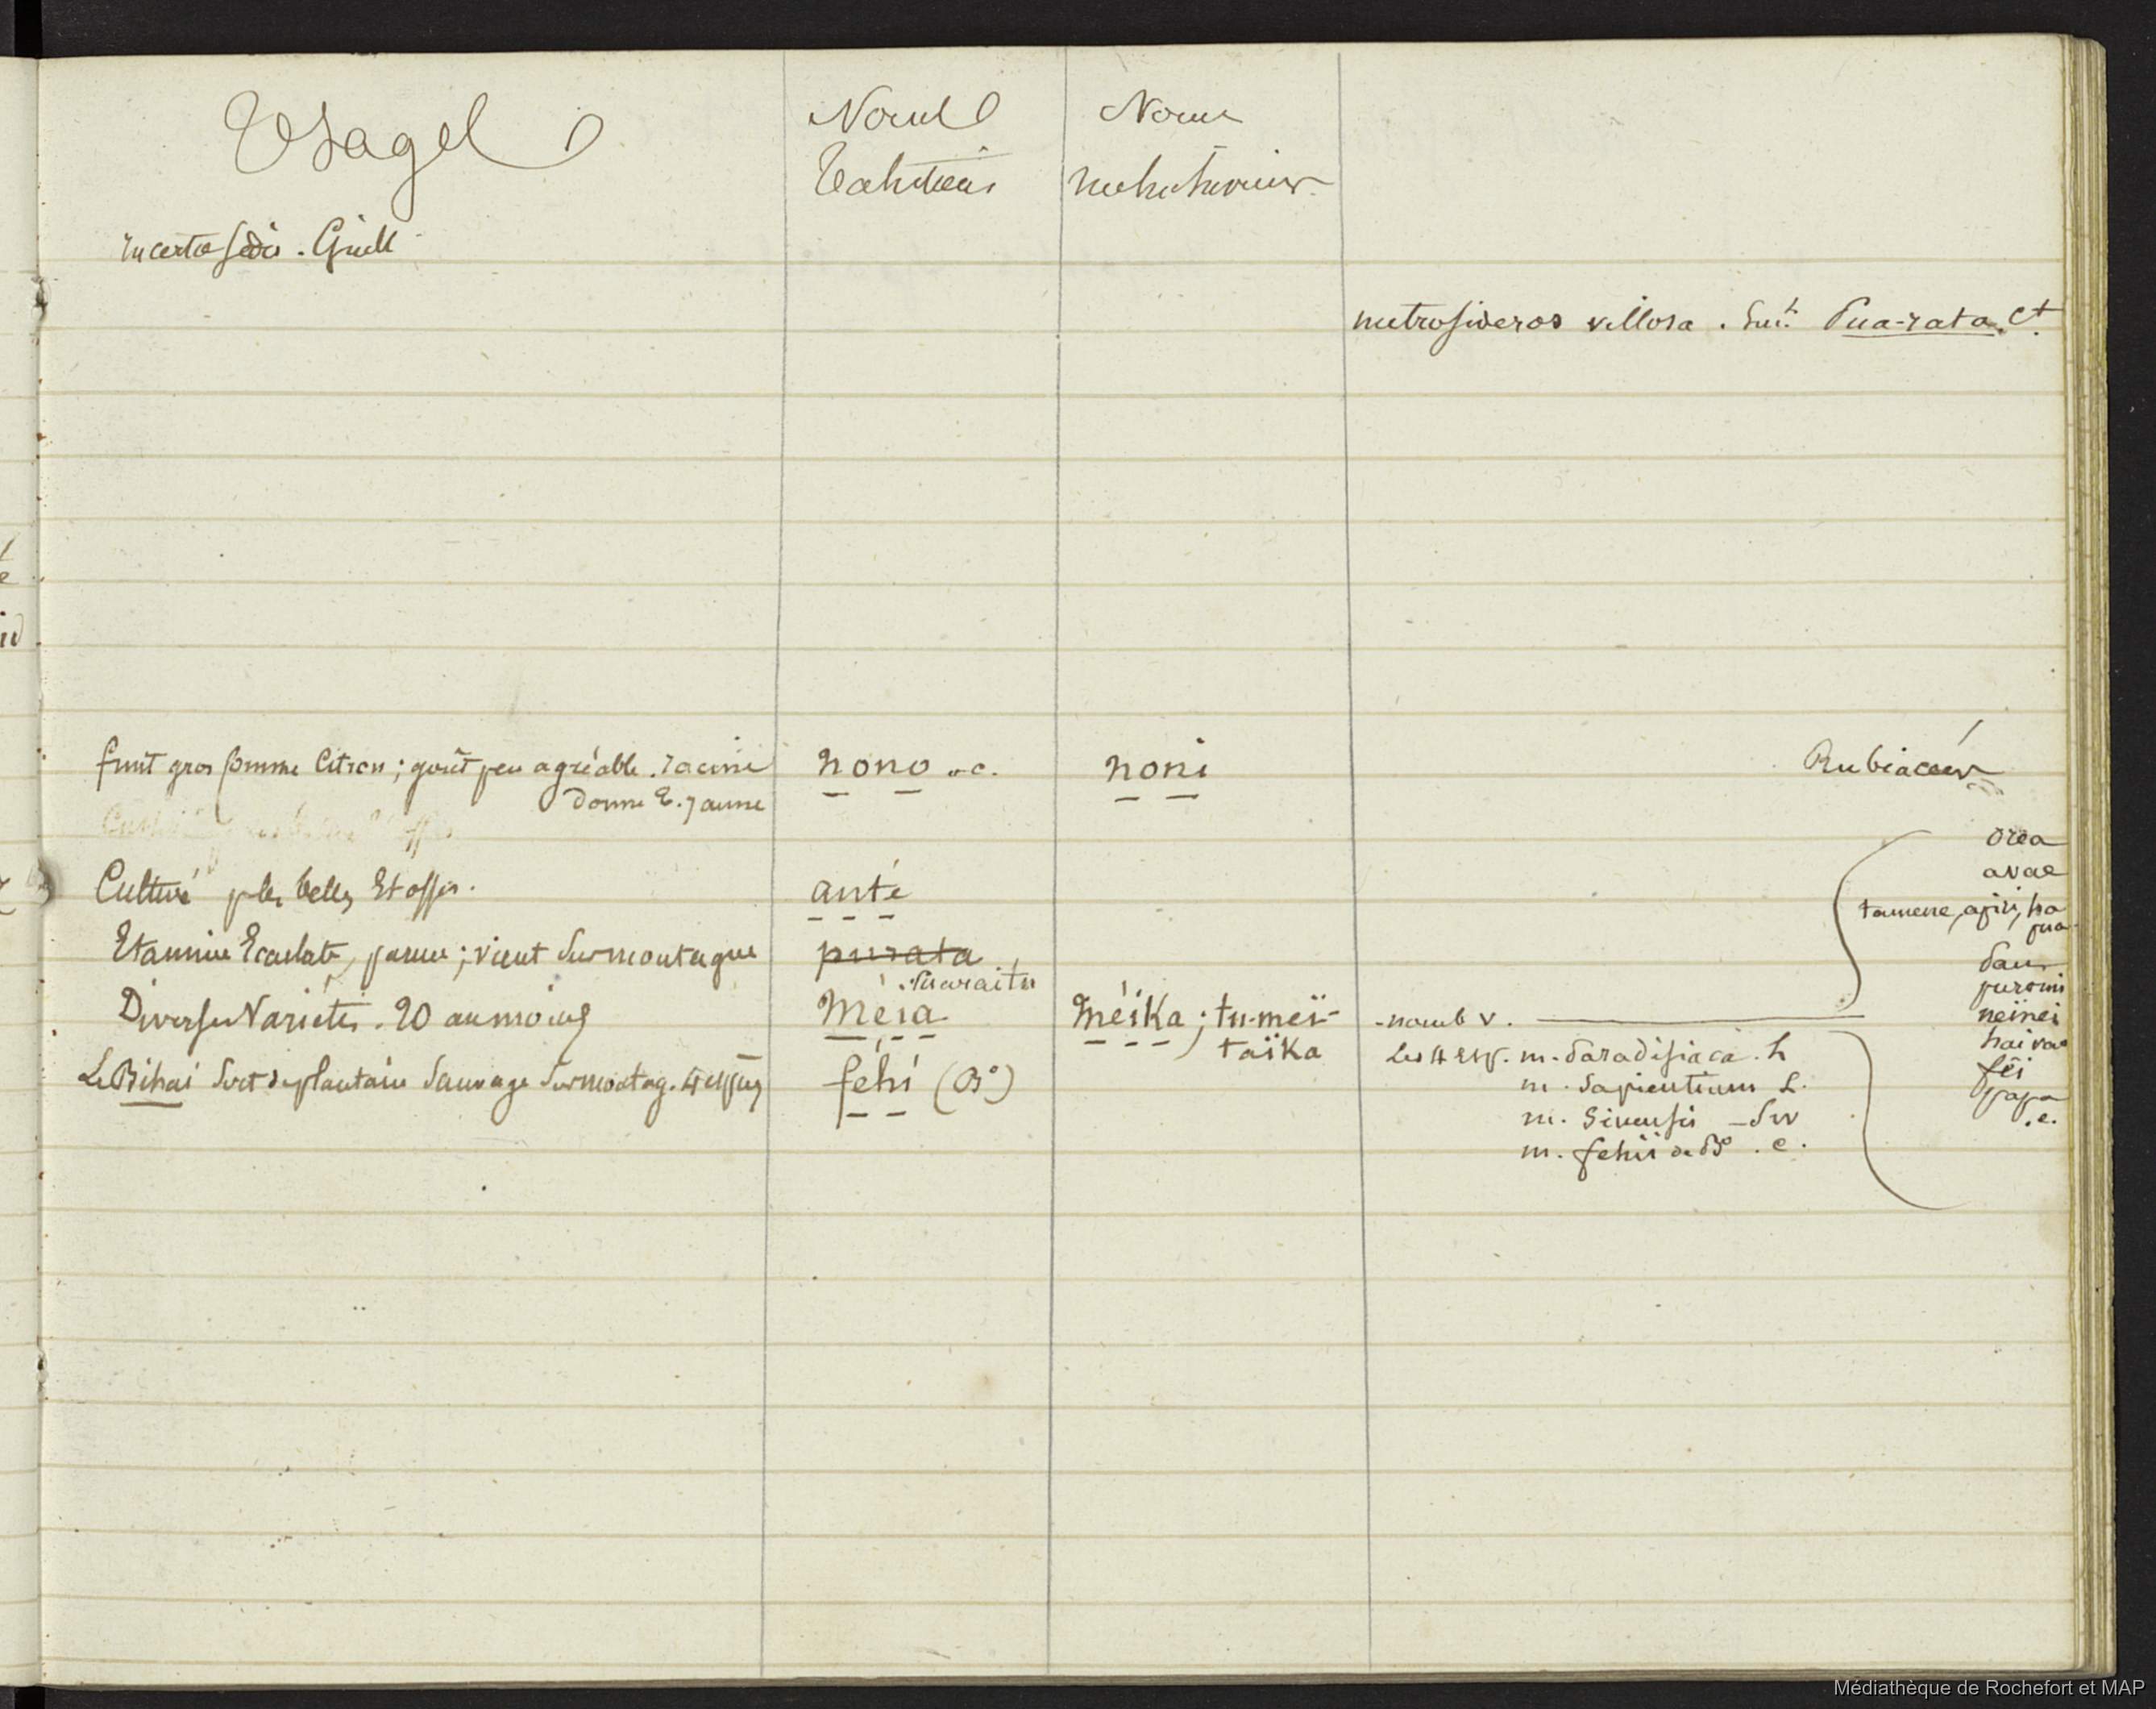 Usages
Noms
Tahitiens
Noms
nukuhiviens
incertae sedis . Guill
metrosideros villosa . Sm.th Pua-rata. Ct.
fruit gros comme Citron ; goût peu agréable . racine
donne t. jaune
nono
noni
Rubiacées
Cultivé p les belles Etoffes .
anté
Etamine Ecarlate, parure ; vient sur montagne
purata
Diverses Variétés . 20 au moins
méia
méika ; tu-meï-
taïka
- nomb v .
Le Bihai sort de plantain sauvage sur montag. 4 espèces
féhi (Bo)
Les 4 esp. m. Paradisiaca . L
m. Sapientium L.
m. Sinensis - Sw
m. fehii de Bo . c .
orea
avae
tamene, apiri, ha
pua
puromi
neinei
hai vae
féi
papa
.e.
Médiathèque de Rochefort et MAP